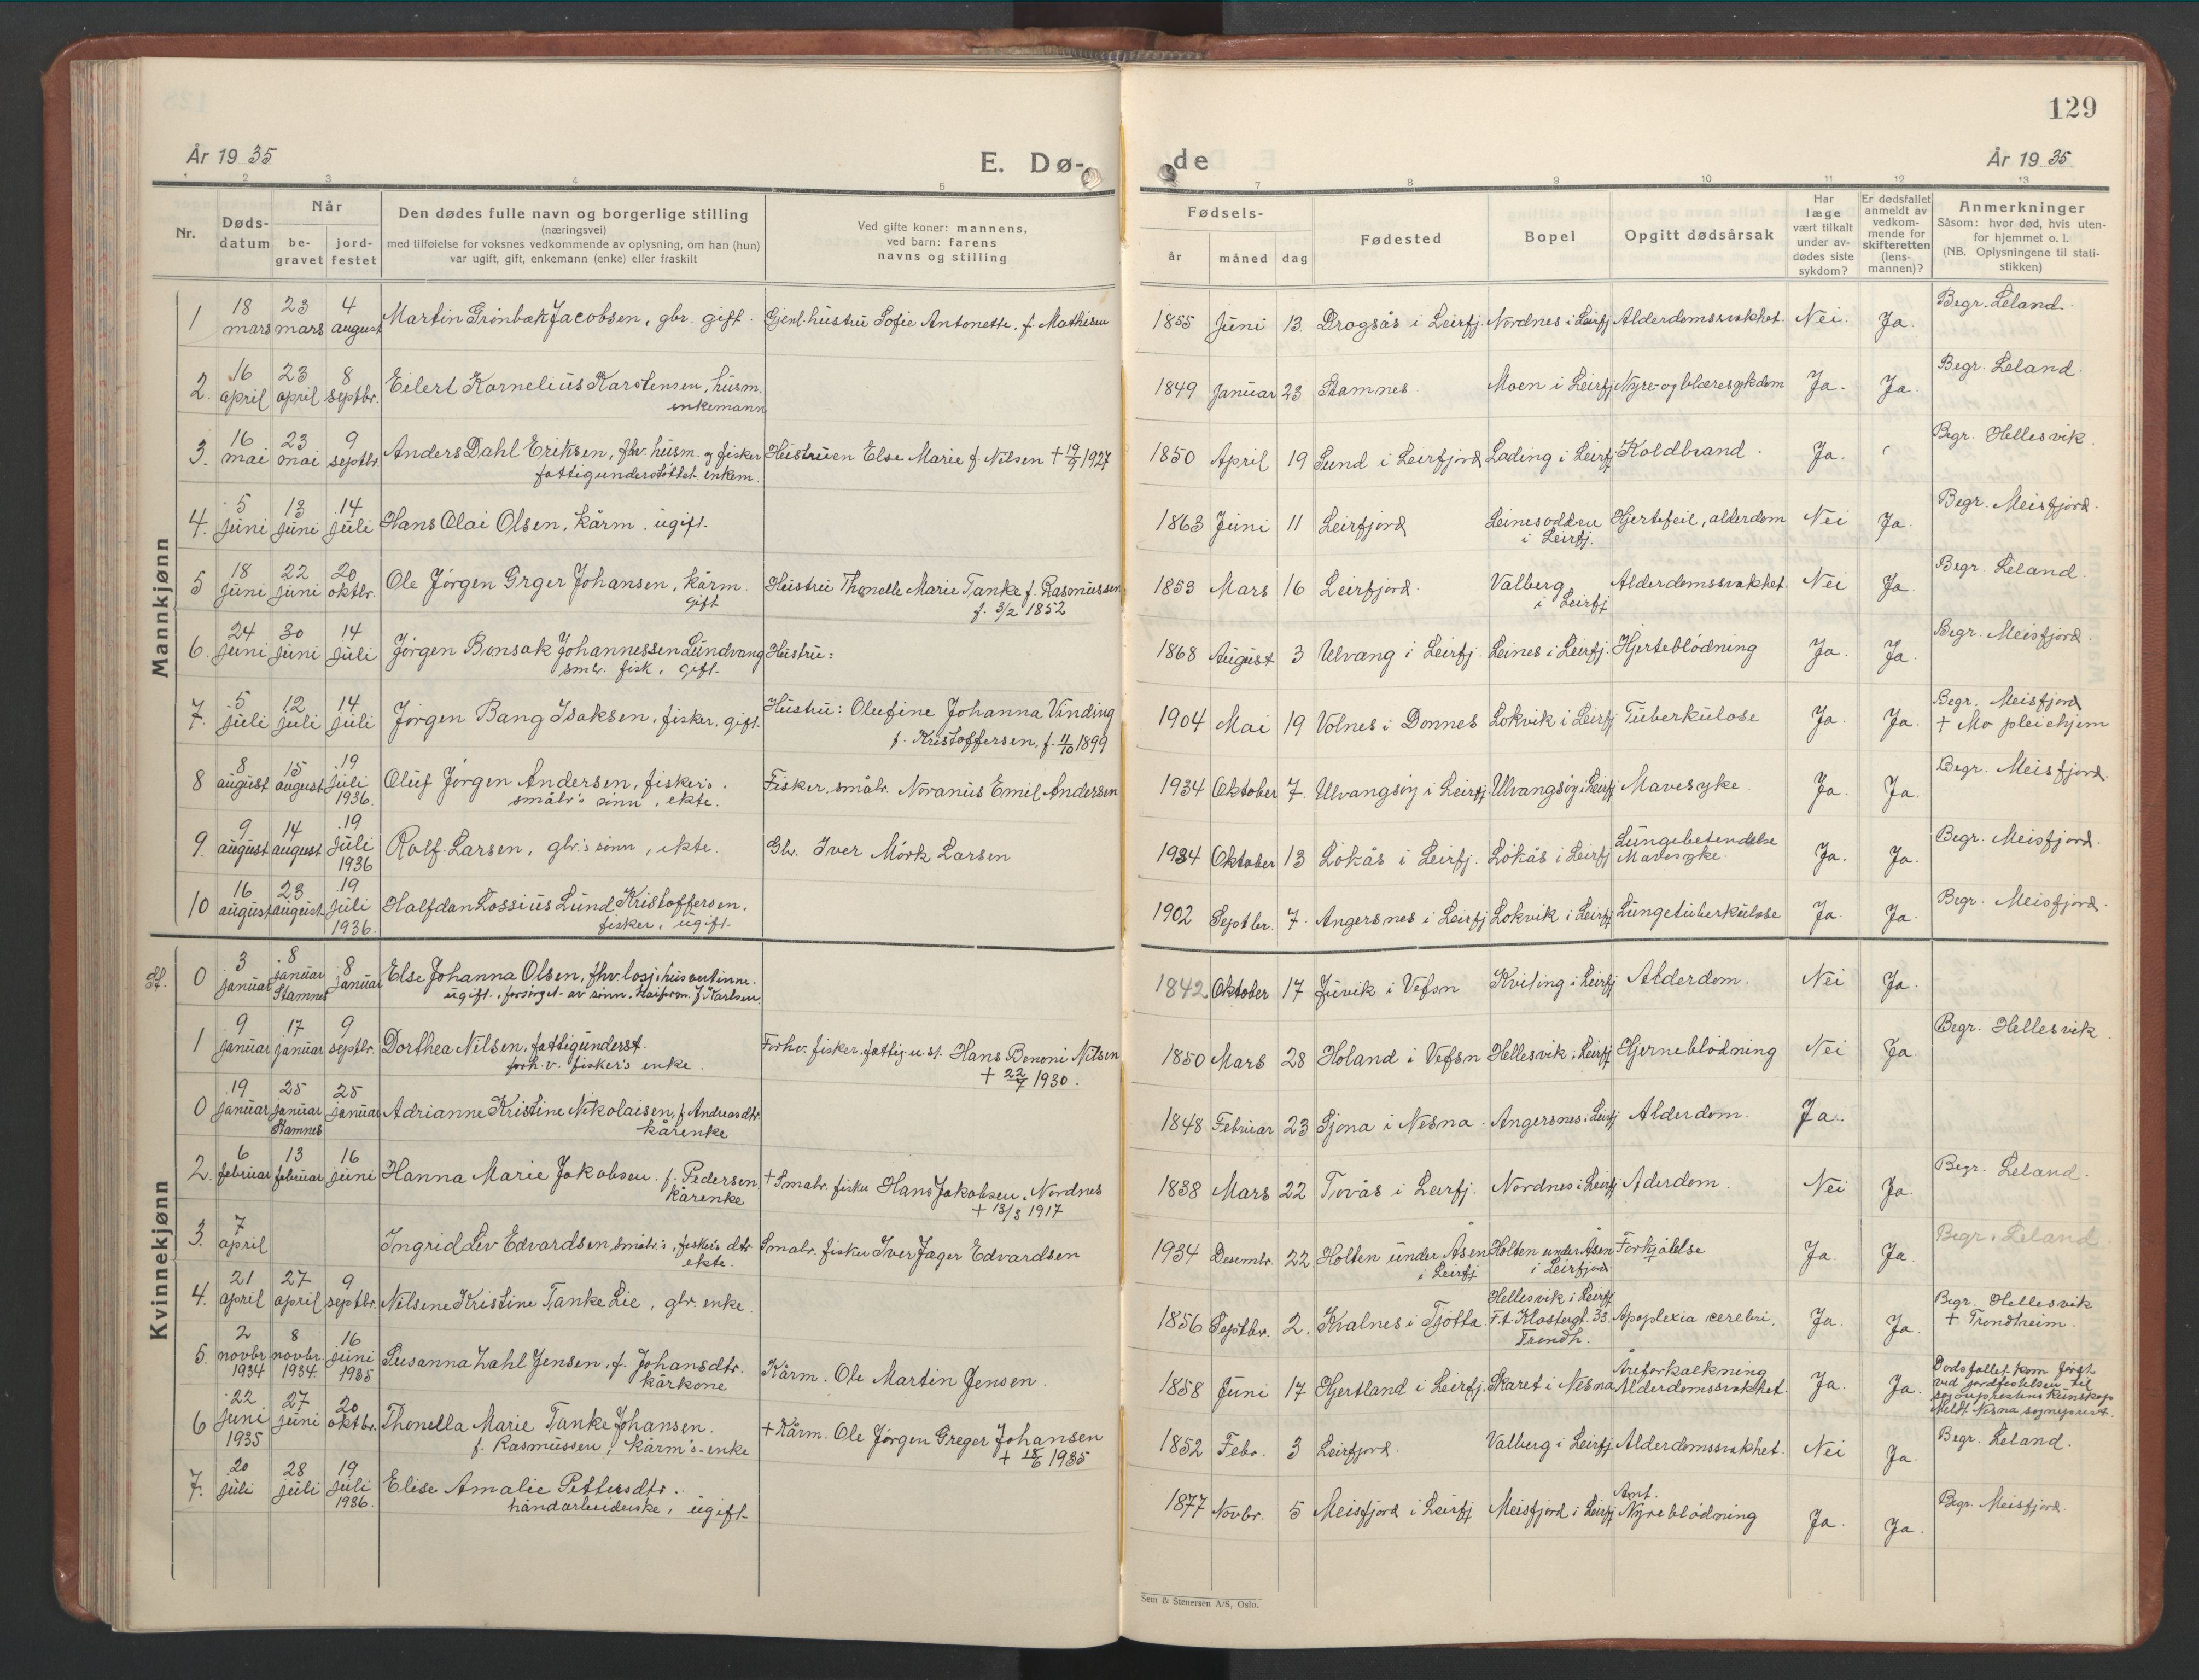 129
År 1935
E. Dø-
de
År 1935
1 2 3 4 5 7 8 9 10 11 12 13
Nr.
Døds-
datum
Når
be-
gravet
jord-
festet
Den dødes fulle navn og borgerlige stilling
(næringsvei)
med tilføielse for voksnes vedkommende av oplysning, om han (hun)
var ugift, gift, enkemann (enke) eller fraskilt
Ved gifte koner: mannens,
ved barn: farens
navns og stilling
Fødsels-
år måned dag
Fødested
Bopel
Opgitt dødsårsak
Har
læge
vært tilkalt
under av-
dødes siste
sykdom?
Er dødsfallet
anmeldt av
vedkom-
mende for
skifteretten
(lens-
mannen)?
Anmerkninger
Såsom: hvor død, hvis uten-
for hjemmet o. l.
(NB. Oplysningene til stati-
stikken)
Mannkjønn
1 18 mars 23 mars 4 august Martin Grönbæk Jacobsen, gbr. gift. Gjenl. hustru Sofie Antonette f. Mathisen 1855 Juni 13 Dragsås i Leirfj. Nordnes i Leirfj. Alderdomssvakhet. Nei. Ja. Begr. Leland.
2. 16 april 23 april 8 septbr. Eilert Kornelius Karstensen, husm. 1849 Januar 23 Stamnes. Moen i Leirfj. Nyre- og blæresykdom Ja. Ja. Begr. Leland.
enkemann
3. 16 mai 23 mai 9 septbr. Anders Dahl Eriksen, fhv. husm. og fisker Hustruen Else Marie f. Nilsen + 19/9 1927 1850 April 19 Sund i Leirfjord Lading i Leirfj. Koldbrand. Ja. Begr. Hellesvik.
fattigunderstöttet. enkem.
4. 5 juni 13 juni 14 juli Hans Olai Olsen, kårm. ugift. 1863 Juni 11 Leirfjord Leinesodden Hjertefeil, alderdom Nei Ja. Begr. Meisfjord.
i Leirfj.
5 18 juni 22 juni 20 oktbr. Ole Jörgen Grger Johansen, kårm. Hustru Thonelle Marie Tanke f. Rasmussen 1853 Mars 16 Leirfjord. Valberg Alderdomssvakhet Nei Ja. Begr. Leland.
gift f. 3/2 1852 i Leirfj
6. 24 juni 30 juni 14 juli Jörgen Bonsak Johannessen Lundvang Hustru: 1868 August 3 Ulvang i Leirfj. Leines i Leirfj. Hjerteblödning Ja. Ja. Begr. Meisfjord.
smbr. fisk, gift.
7. 5 juli 12 juli 14 juli Jörgen Bang Isaksen, fisker, gift. Hustru: Olufine Johanna Vinding 1904 Mai 19 Volnes i Donnes Lokvik i Leirfj Tuberkulose Ja. Ja. Begr. Meisfjord
f. Kristoffersen, f. 11/10 1899 + Mo pleiehjem
8 8 august 15 august 19 juli 1936. Oluf Jörgen Andersen, fiskers. Fisker, småbr. Noranus Emil Andersen 1934 Oktober 7. Ulvangsöy i Leirfj Ulvangsöy i Leirfj Mavesyke. Ja. Ja. Begr. Meisfjord.
småbr's sönn, ekte.
9. 9 august 14 august 19 juli 1936 Rolf Larsen, gbr.'s sönn, ekte. Gbr. Iver Mörk Larsen 1934 Oktober 13 Lökås i Leirfj. Lökås i Leirfj Lungebetendelse Mavesyke. Ja. Ja. Begr. Meisfjord.
10 16 august 23 august 19 juli 1936. Halfdan Lossius Lund Kristoffersen. 1902 Septbr. 7. Angersnes i Leirfj Lokvik i Leirfj Lungetuberkulose Ja. Ja. Begr. Meisfjord.
fisker, ugift.
Kvinnekjønn
0 3 januar 8 januar Stamnes 8 januar Else Johanna Olsen, fhv. losjihusvertinne. 1842 Oktober 17 Juvik i Vefsn Kviting i Leirfj Alderdom. Nei Ja.
ugift, forsörget av sönn, J. Karlsen
1 9 januar 17 januar 9 septbr. Dorthea Nilsen, fattigunderst. Forhv. fisker, fattigu.st. Hans Benoni Nilsen 1850 Mars 28 Holand i Vefsn Hellesvik i Leirfj Hjerneblödning Nei Ja. Begr. Hellesvik.
forh.v. fisker's enke. + 22/7 1930.
0 19 januar 25 januar Stamnes 25 januar Adrianne Kristine Nikolaisen, f. Andreasdtr. 1848 Februar 23 Sjona i Nesna. Angersnes i Leirfj Alderdom. Ja.
kårenke
2. 6 februar 13 februar 16 juni Hanna Marie Jakobsen. f. Pedersen. + Smabr. fisker Hans Jakobsen, Nordnes 1838 Mars 22 Tovås i Leirfj. Nordnes i Leirfj Aderdom. Nei Ja. Begr. Leland.
kårenke + 13/8 1917
3. 7 april Ingrid Liv Edvardsen, småbr.'s, fiskers dtr Smabr. fisker Iver Jager Edvardsen 1934 Desembr. 22 Holten under Åsen Holten under Åsen Forkjölelse Ja. Ja. Begr. Leland
ekte. i Leirfj i Leirfjord.
4. 21 april 27 april 9 septbr. Nilsine Kristine Tanke Lie, gbr. enke. 1856 Septbr. 2. Kvalnes i Tjötta Hellesvik i Leirfj F.t. Klostergt. 33. Trondh. Apoplexia cerebri. Ja. Ja. Begr. Hellesvik + Trondheim.
5. 2 novbr 1934 8 novbr. 1934 16 juni 1935 Susanna Zahl Jensen, f. Johansdtr. Kårm. Ole Martin Jensen. 1858 Juni 17 Hjertland i Leirfj. Skaret i Nesna Åreforkalkning Alderdomssvakhet. Ja. Ja. Dödsfallet kom först
kårkone ved jordfestelsen til
sogneprestens kunskap
Meldt Nesna sogneprest.
6 22 juni 1935 27 juni 20 oktbr. Thonella Marie Tanke Johansen. + Kårm. Ole Jörgen Greger Johansen 1852 Febr. 3 Leirfjord. Valberg i Leirfj Alderdomssvakhet. Nei Ja. Begr. Leland.
f. Rasmussen, kårm's-enke + 18/6 1935
7. 20 juli 28 juli 19 juli 1936. Elise Amalie Pettersdtr. 1877 Novbr. 5 Meisfjord i Leirfj Meisfjord i Leirfj Nyreblödning Ja. Ja. Begr. Meisfjord.
håndarbeiderske, ugift.
Sem & Stenersen A/S, Oslo.